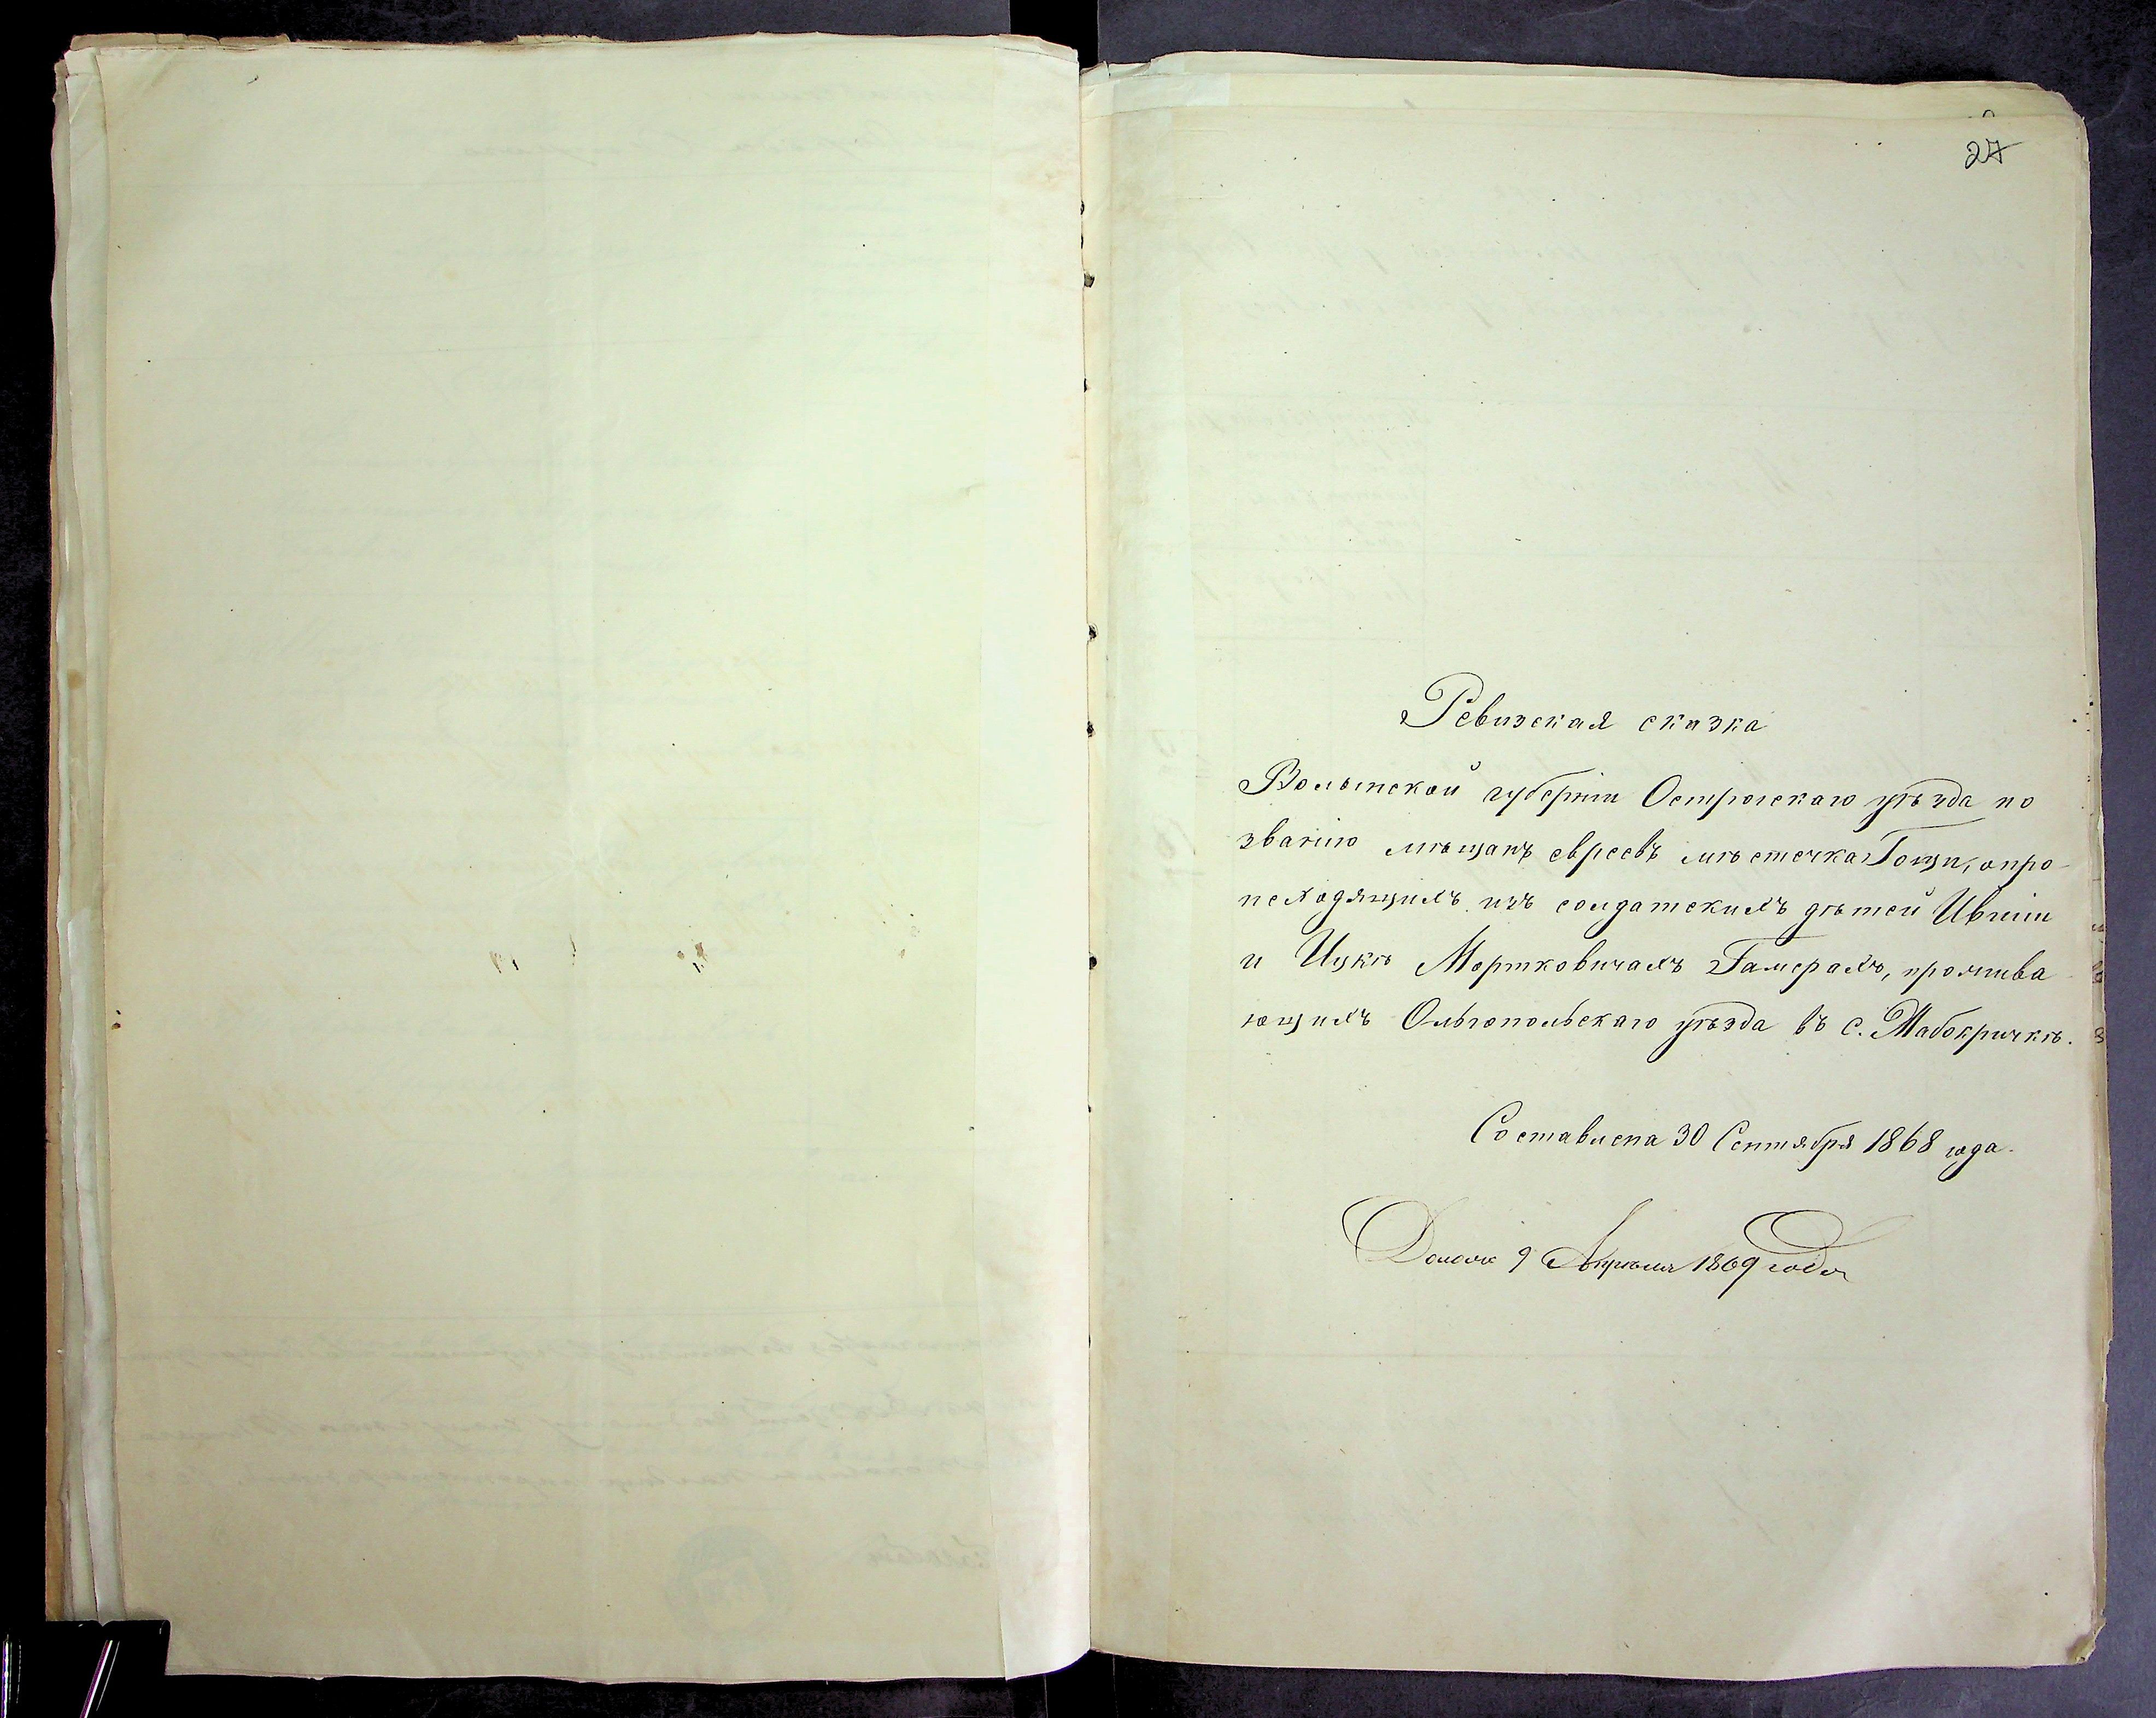 27
Ревизская сказка
Волынской губерніи Острогскаго уѣзда по
званію мѣщанъ евреевъ мѣстечка Гощи, о про-
исходящихъ изъ солдатскихъ дѣтей Ившіи
и Ицкѣ Мортковичахъ Гамерахъ, прожива
ющихъ Ольгопольскаго уѣзда въ с. Жабокричкѣ.
Составлена 30 Сентября 1868 года.
9 Апрѣля 1869 года